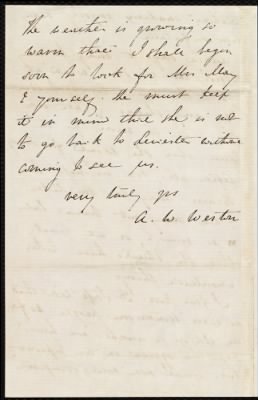 The weather is growing so
warm that I shall begin
soon to look for Mrs May
& yourself. She must keep
it in mind that she is not
to go back to Leicester without
coming to see us.
very truly yrs
A. W. Weston